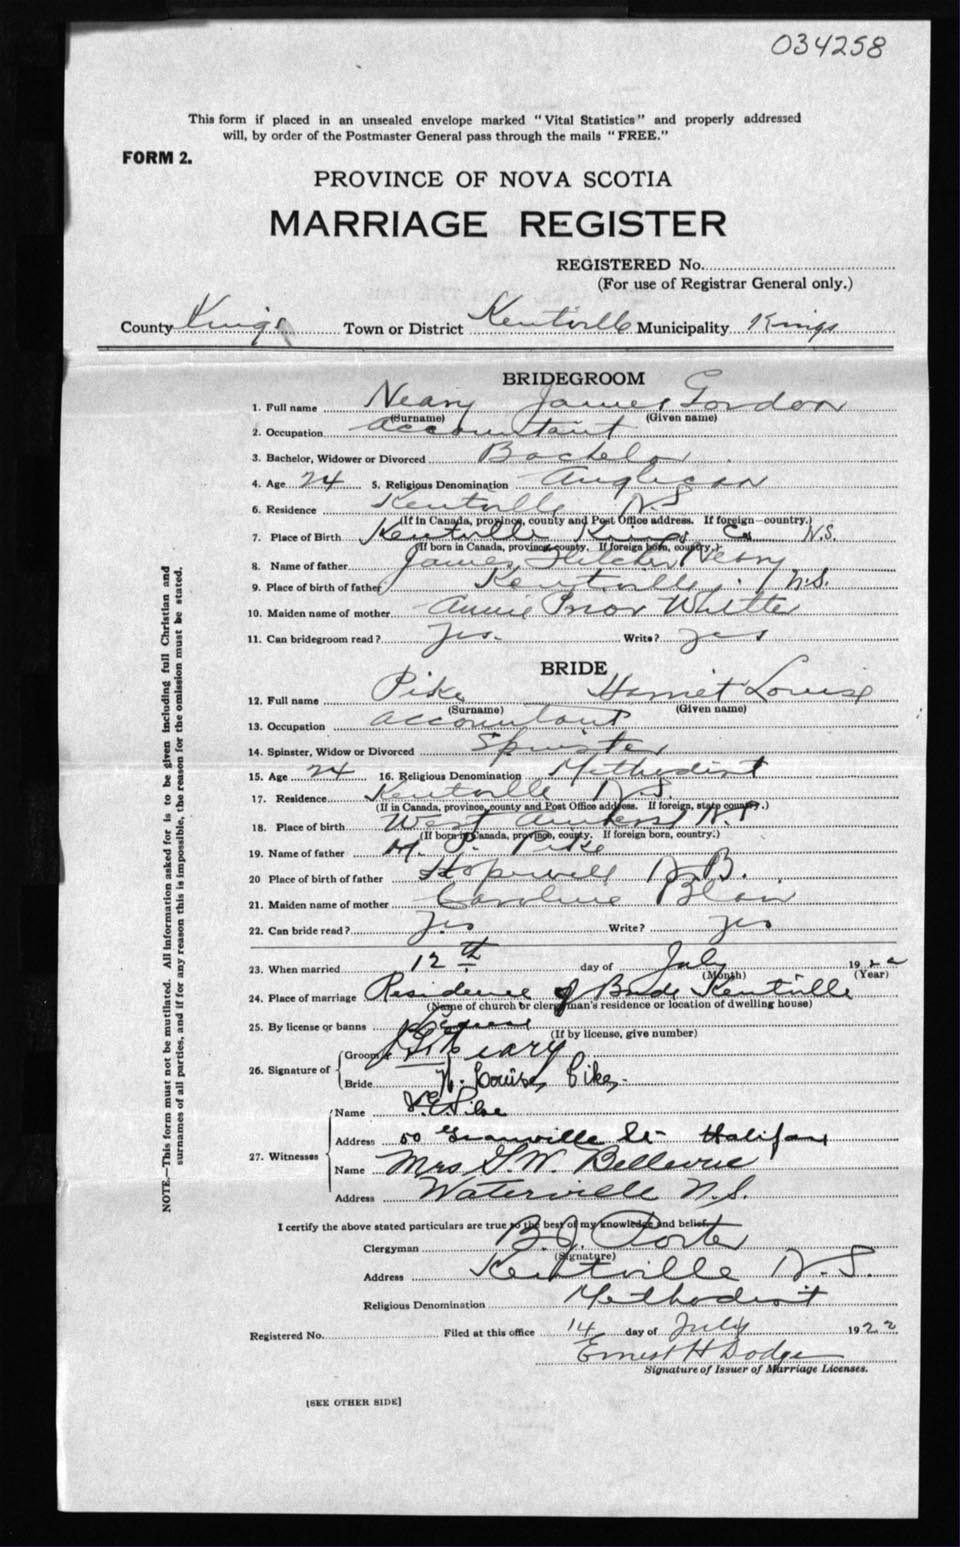 034258
This form if placed in an unsealed envelope marked "Vital Statistics" and properly addressed
will, by order of the Postmaster General pass through the mails "FREE."
FORM 2.
PROVINCE OF NOVA SCOTIA
MARRIAGE REGISTER
REGISTERED No.
(For use of Registrar General only.)
County Kings Town or District Kentville Municipality Kings
BRIDEGROOM
1. Full name Neary James Gordon
(Surname) (Given name)
2. Occupation accountant
3. Bachelor, Widower or Divorced Bachelor
4. Age 24 5. Religious Denomination Anglican
6. Residence Kentville N.S
(If in Canada, province, county and Post Office address. If foreign—country.)
7. Place of Birth Kentville Kings Co N.S.
(If born in Canada, province, county. If foreign born, country.)
8. Name of father James Fletcher Neary
9. Place of birth of father Kentville N.S.
10. Maiden name of mother Annie Prior
11. Can bridegroom read? Yes. Write? yes
BRIDE
12. Full name Pike Harriet Louise
(Surname) (Given name)
13. Occupation accountant
14. Spinster, Widow or Divorced Spinster
15. Age 24 16. Religious Denomination Methodist
17. Residence Kentville N.S.
(If in Canada, province, county and Post Office address. If foreign, state country.)
18. Place of birth West Amherst N.S
(If born in Canada, province, county. If foreign born, country.)
19. Name of father Pike
20 Place of birth of father Hopewell N.B.
21. Maiden name of mother Caroline Blair
22. Can bride read? Yes Write? yes
23. When married 12th day of July 1922
(Month) (Year)
24. Place of marriage Residence of Bride Kentville
(Name of church or clergyman's residence or location of dwelling house)
25. By license or banns License
(If by license, give number)
26. Signature of Groom J. G. Neary
Bride H. Louise Pike
27. Witnesses
Name Pike
Address 50 Granville St Halifax
Name Mrs G. W. Bellevue
Address Waterville N.S.
I certify the above stated particulars are true to the best of my knowledge and belief.
Clergyman B. J. Porter
(Signature)
Address Kentville N.S.
Religious Denomination Methodist
Registered No. Filed at this office 14 day of July 1922
Ernest H Dodge
Signature of Issuer of Marriage Licenses.
[SEE OTHER SIDE]
NOTE.—This form must not be mutilated. All information asked for is to be given including full Christian and
surnames of all parties, and if for any reason this is impossible, the reason for the omission must be stated.